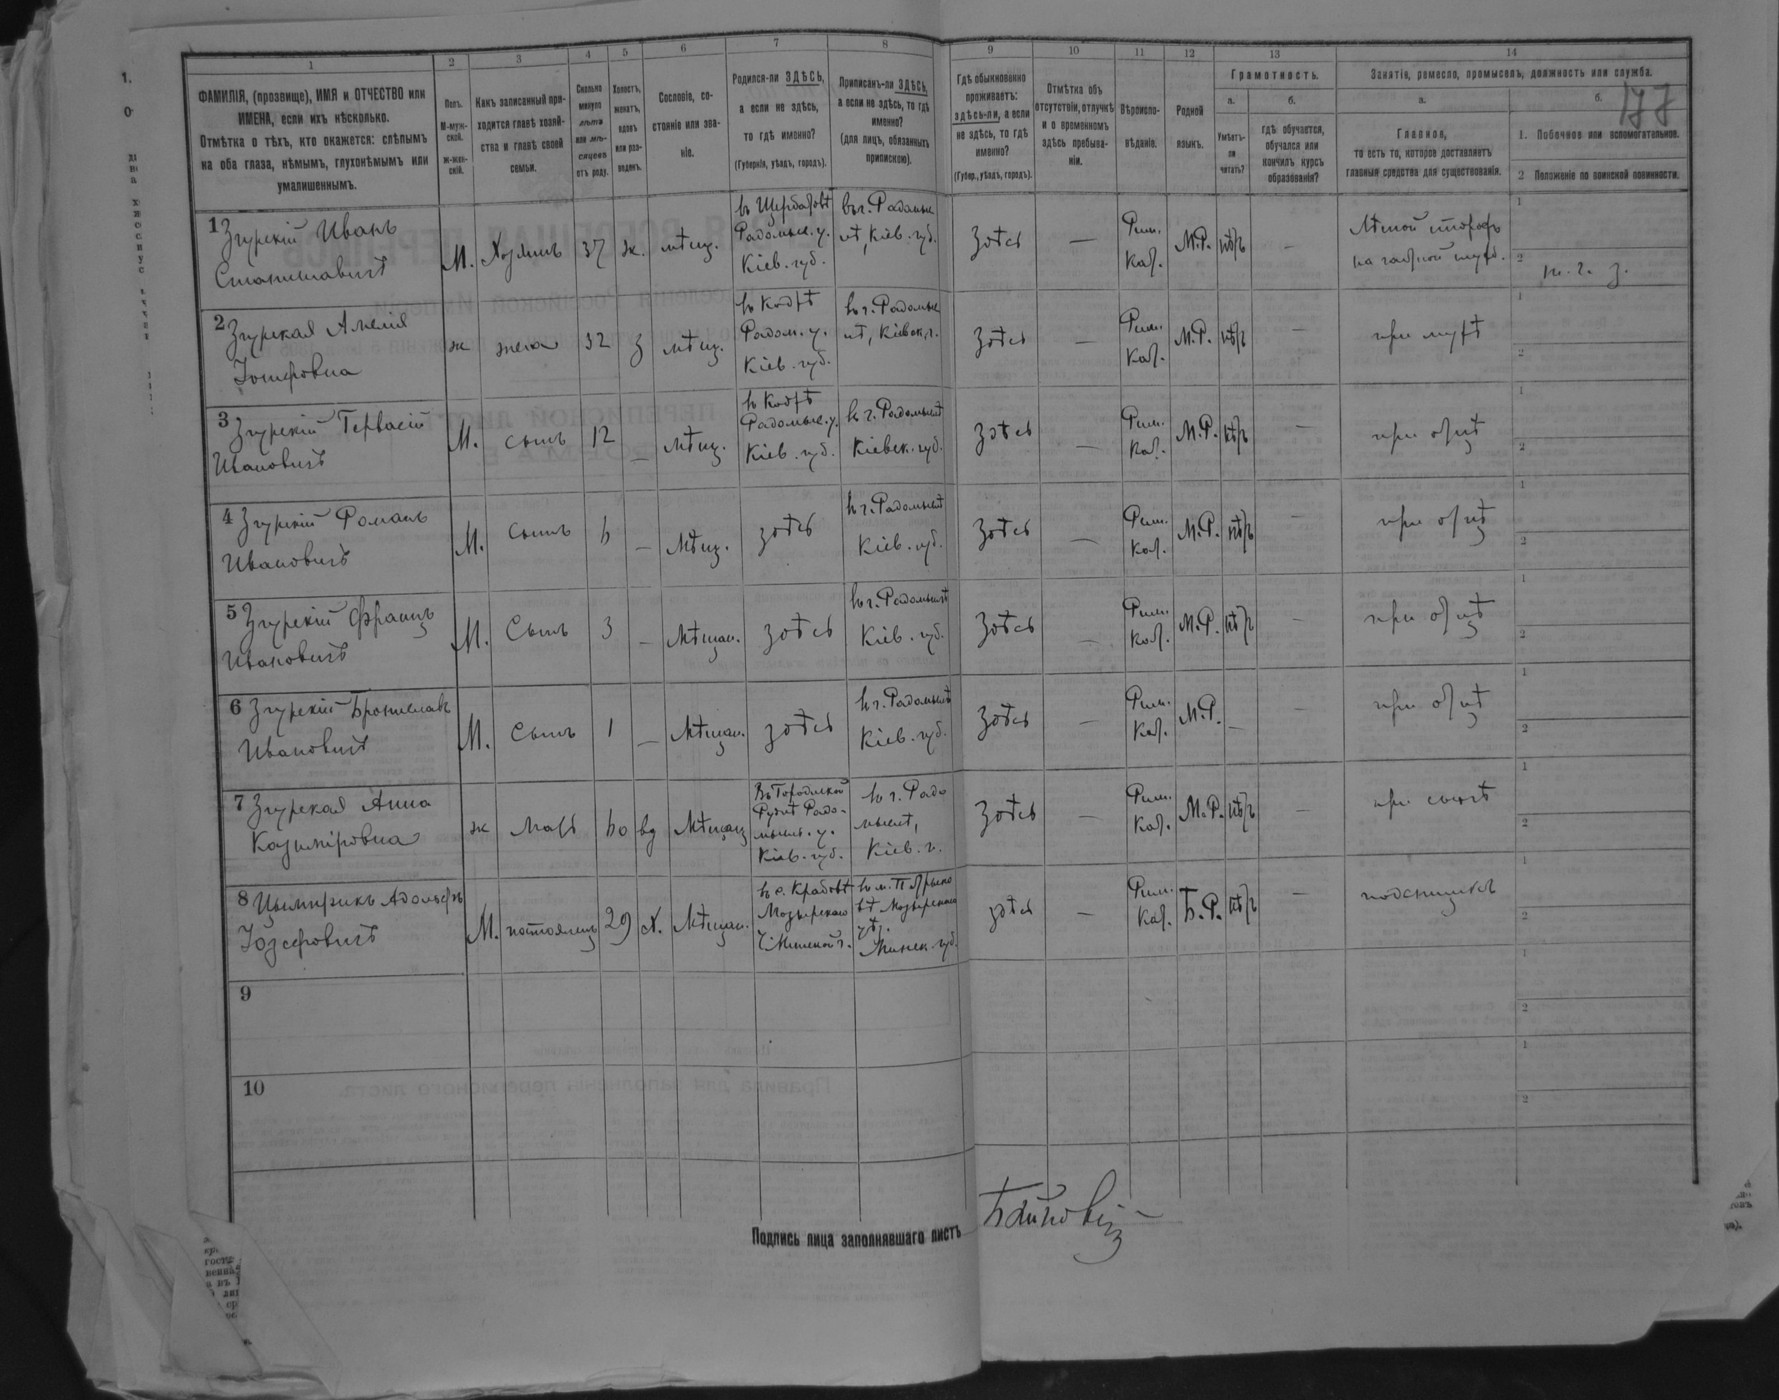 1 2 3 4 5 6 7 8 9 10 11 12 13 14
177
ФАМИЛІЯ, (прозвище), ИМЯ и ОТЧЕСТВО или
ИМЕНА, если ихъ нѣсколько.
Отмѣтка о тѣхъ, кто окажется: слѣпымъ
на оба глаза, нѣмымъ, глухонѣмымъ или
умалишеннымъ.
Полъ.
М-муж-
ской.
ж-жен-
скій.
Какъ записанный при-
ходится главѣ хозяй-
ства и главѣ своей
семьи.
Сколько
минуло
лѣтъ
или мѣ-
сяцевъ
отъ роду.
Холостъ,
женатъ,
вдовъ
или раз-
веденъ.
Сословіе, со-
стояніе или зва-
ніе.
Родился-ли ЗДѢСЬ,
а если не здѣсь,
то гдѣ именно?
(Губернія, уѣздъ, городъ).
Приписанъ-ли ЗДѢСЬ,
а если не здѣсь, то гдѣ
именно?
(для лицъ, обязанныхъ
припискою).
Гдѣ обыкновенно
проживаетъ:
здѣсь-ли, а если
не здѣсь, то гдѣ
именно?
(Губер., уѣздъ, городъ).
Отмѣтка объ
отсутствіи, отлучкѣ
и о временномъ
здѣсь пребыва-
ніи.
Вѣроиспо-
вѣданіе.
Родной
языкъ.
Грамотность.
а.
Умѣетъ-
ли
читать?
б.
гдѣ обучается,
обучался или
кончилъ курсъ
образованія?
Занятіе, ремесло, промыселъ, должность или служба.
а.
Главное,
то есть то, которое доставляетъ
главныя средства для существованія.
б.
1. Побочное или вспомогательное.
2 Положеніе по воинской повинности.
1 Згурскій Иванъ
Станиславичъ
М. Хозяинъ 37 ж. мѣщ.
Радомыс. у.
Кіев. губ.
въ г. Радомыс
лѣ, Кіев. губ.
Здѣсь — Рим. Каѳ. М.Р. нѣтъ —
Лѣсной сторожъ
2 Згурская Амелія
Іосифовна
ж жена 32 з мѣщ.
въ Кодрѣ
Радом. у.
Кіев. губ.
въ г. Радомыс
лѣ, Кіевск. г.
Здѣсь — Рим. Каѳ. М.Р. нѣтъ — при мужѣ
3 Згурскій Гервасій
Ивановичъ
М. сынъ 12 — мѣщ.
въ Кодрѣ
Радомыс. у.
Кіев. губ.
въ г. Радомыслѣ
Кіевск. губ.
Здѣсь — Рим. Каѳ. М.Р. нѣтъ — при отцѣ
4 Згурскій Романъ
Ивановичъ
М. сынъ 6 — Мѣщ. здѣсь
въ г. Радомыслѣ
Кіев. губ.
Здѣсь — Рим. Каѳ. М.Р. нѣтъ — при отцѣ
5 Згурскій Францъ
Ивановичъ
М. Сынъ 3 — Мѣщан. здѣсь
въ г. Радомыслѣ
Кіев. губ.
Здѣсь — Рим. Каѳ. М.Р. нѣтъ — при отцѣ
6 Згурскій Брониславъ
Ивановичъ
М. Сынъ 1 — Мѣщан. здѣсь
въ г. Радомыслѣ
Кіев. губ.
Здѣсь — Рим. Каѳ. М.Р. — — при отцѣ
7 Згурская Анна
Казиміровна
ж Мать 60 вд Мѣщан
Радо-
мысл. у.
Кіев. губ.
въ г. Радо
мыслѣ,
Кіев. г.
Здѣсь — Рим. Каѳ. М.Р. нѣтъ — при сынѣ
8 Адольфъ
Іозефовичъ
М. постоялец 29 х. Мѣщан.
Мозырскаго
у. Минской г.
Мозырскаго
уѣз.
Минск. губ.
здѣсь — Рим. Каѳ. Б.Р. нѣтъ —
9
10
Подпись лица заполнявшаго листъ